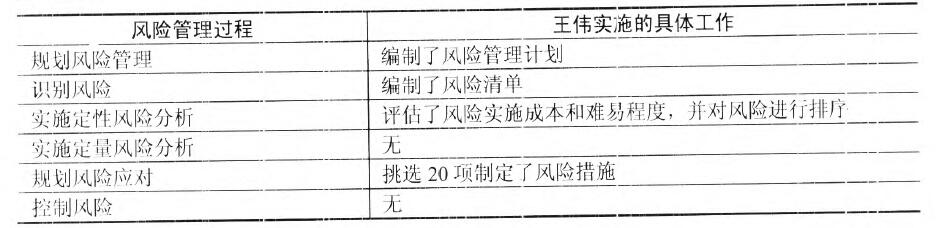 风险管理过程 王伟实施的具体工作
规划风险管理 编制了风险管理计划
识别风险 编制了风险清单
实施定性风险分析 评估了风险实施成本和难易程度，并对风险进行排序
实施定量风险分析 无
规划风险应对 挑选 20 项制定了风险措施
控制风险 无